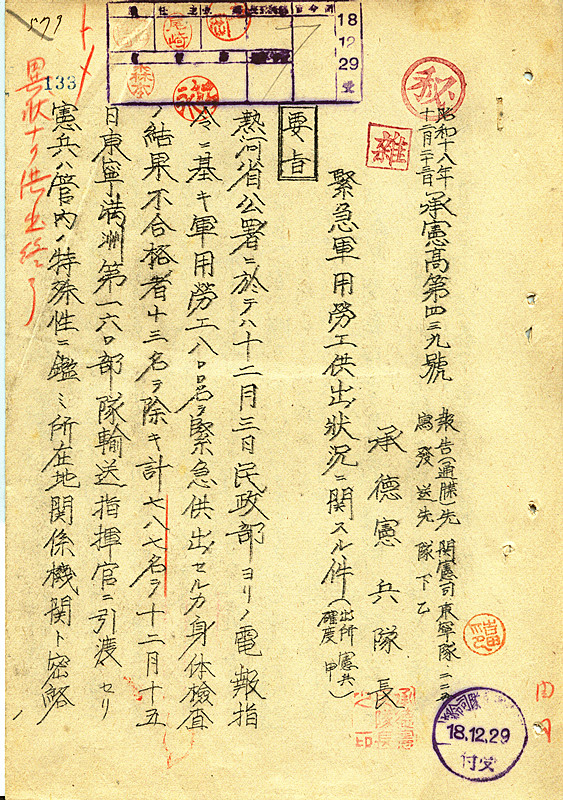 昭和十八年
十二月二十三日
承憲高第四三九號
報告(通牒)先 関憲司 東寧隊
寫発送先 隊下乙
承德憲兵隊長
緊急軍用勞工供出狀況ニ関スル件
(出所 憲兵
確度 甲)
要旨
熱河省公署ニ於テハ十二月三日民政部ヨリノ電報指
令ニ基キ軍用勞工八〇〇名ヲ緊急供出セルカ身体檢査
ノ結果不合格者十三名ヲ除キ計七八七名ヲ十二月十五
日東寧満洲第一六〇部隊輸送指揮官ニ引渡セリ
憲兵ハ管內ノ特殊性ニ鑑ミ所在地関係機関ト密絡
異狀ナク供出終了
133
秘
雜
18
12
29
尾崎
森本
18.12.29
付受